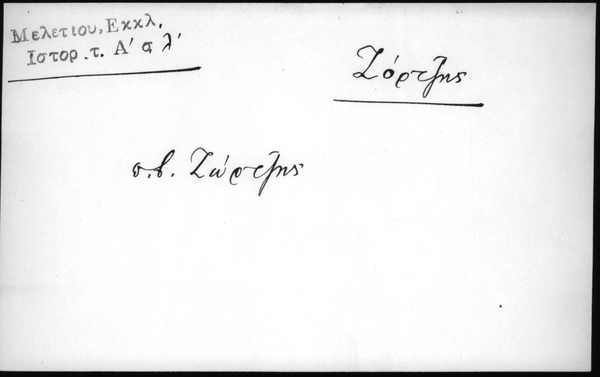 Μελετίου, Εκκλ.
Ιστορ. τ. Α' σ λ'
Ζόρτζης
σ.β. Ζώρτζης